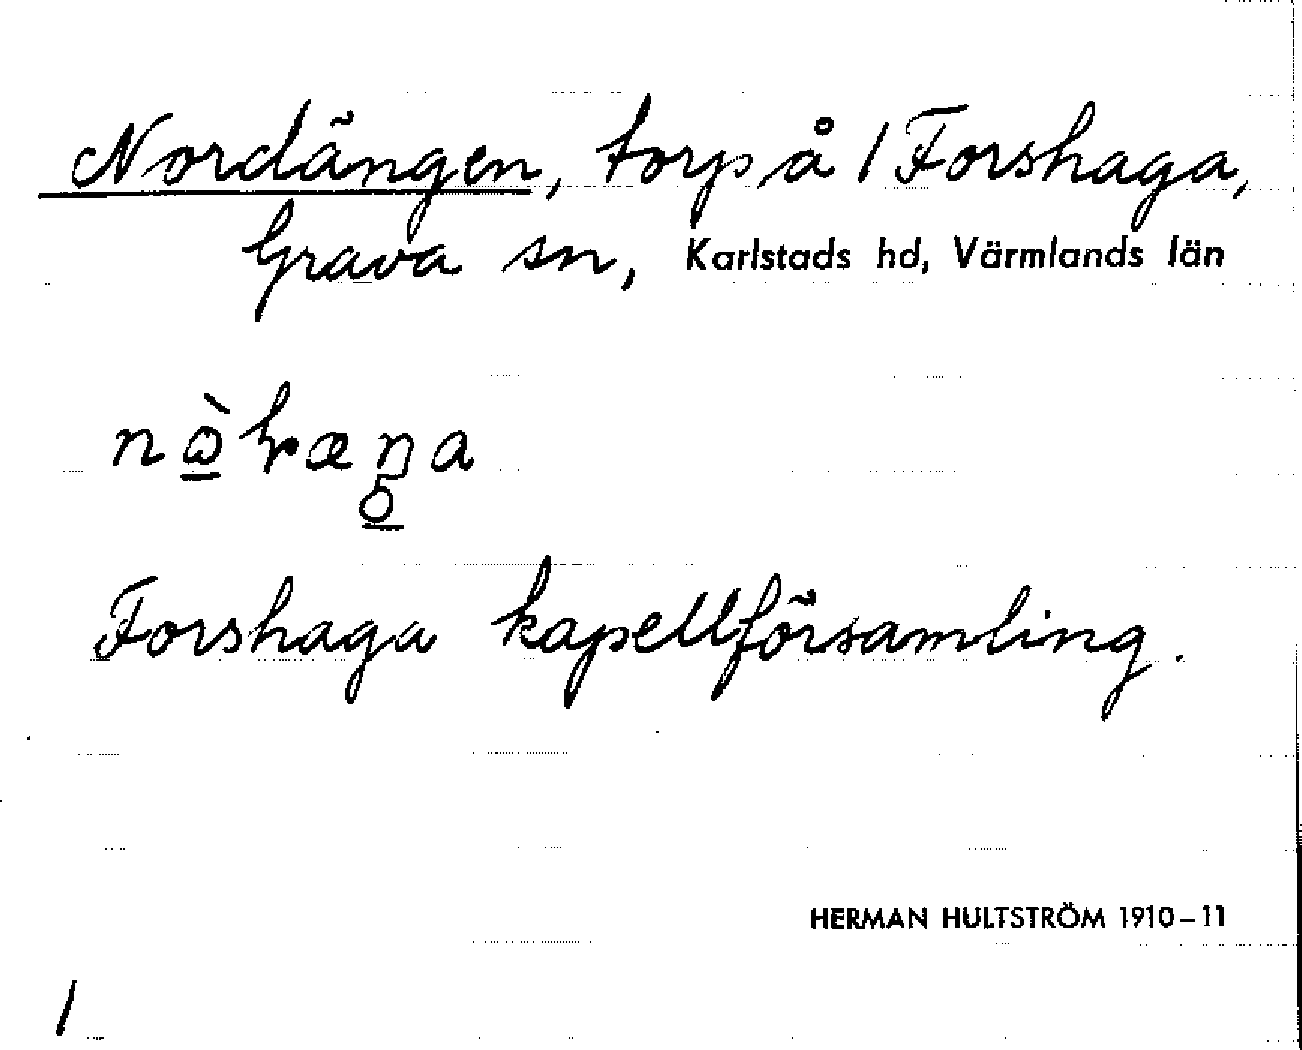 Nordängen, torp å 1 Forshaga,
Grava sn, Karlstads hd, Värmlands län
Forshaga kapellförsamling.
HERMAN HULTSTRÖM 1910-11
1